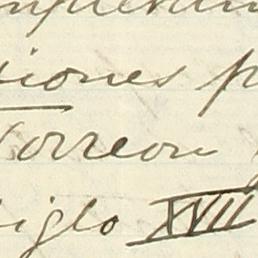 siones p
Torreon y
siglo XVII